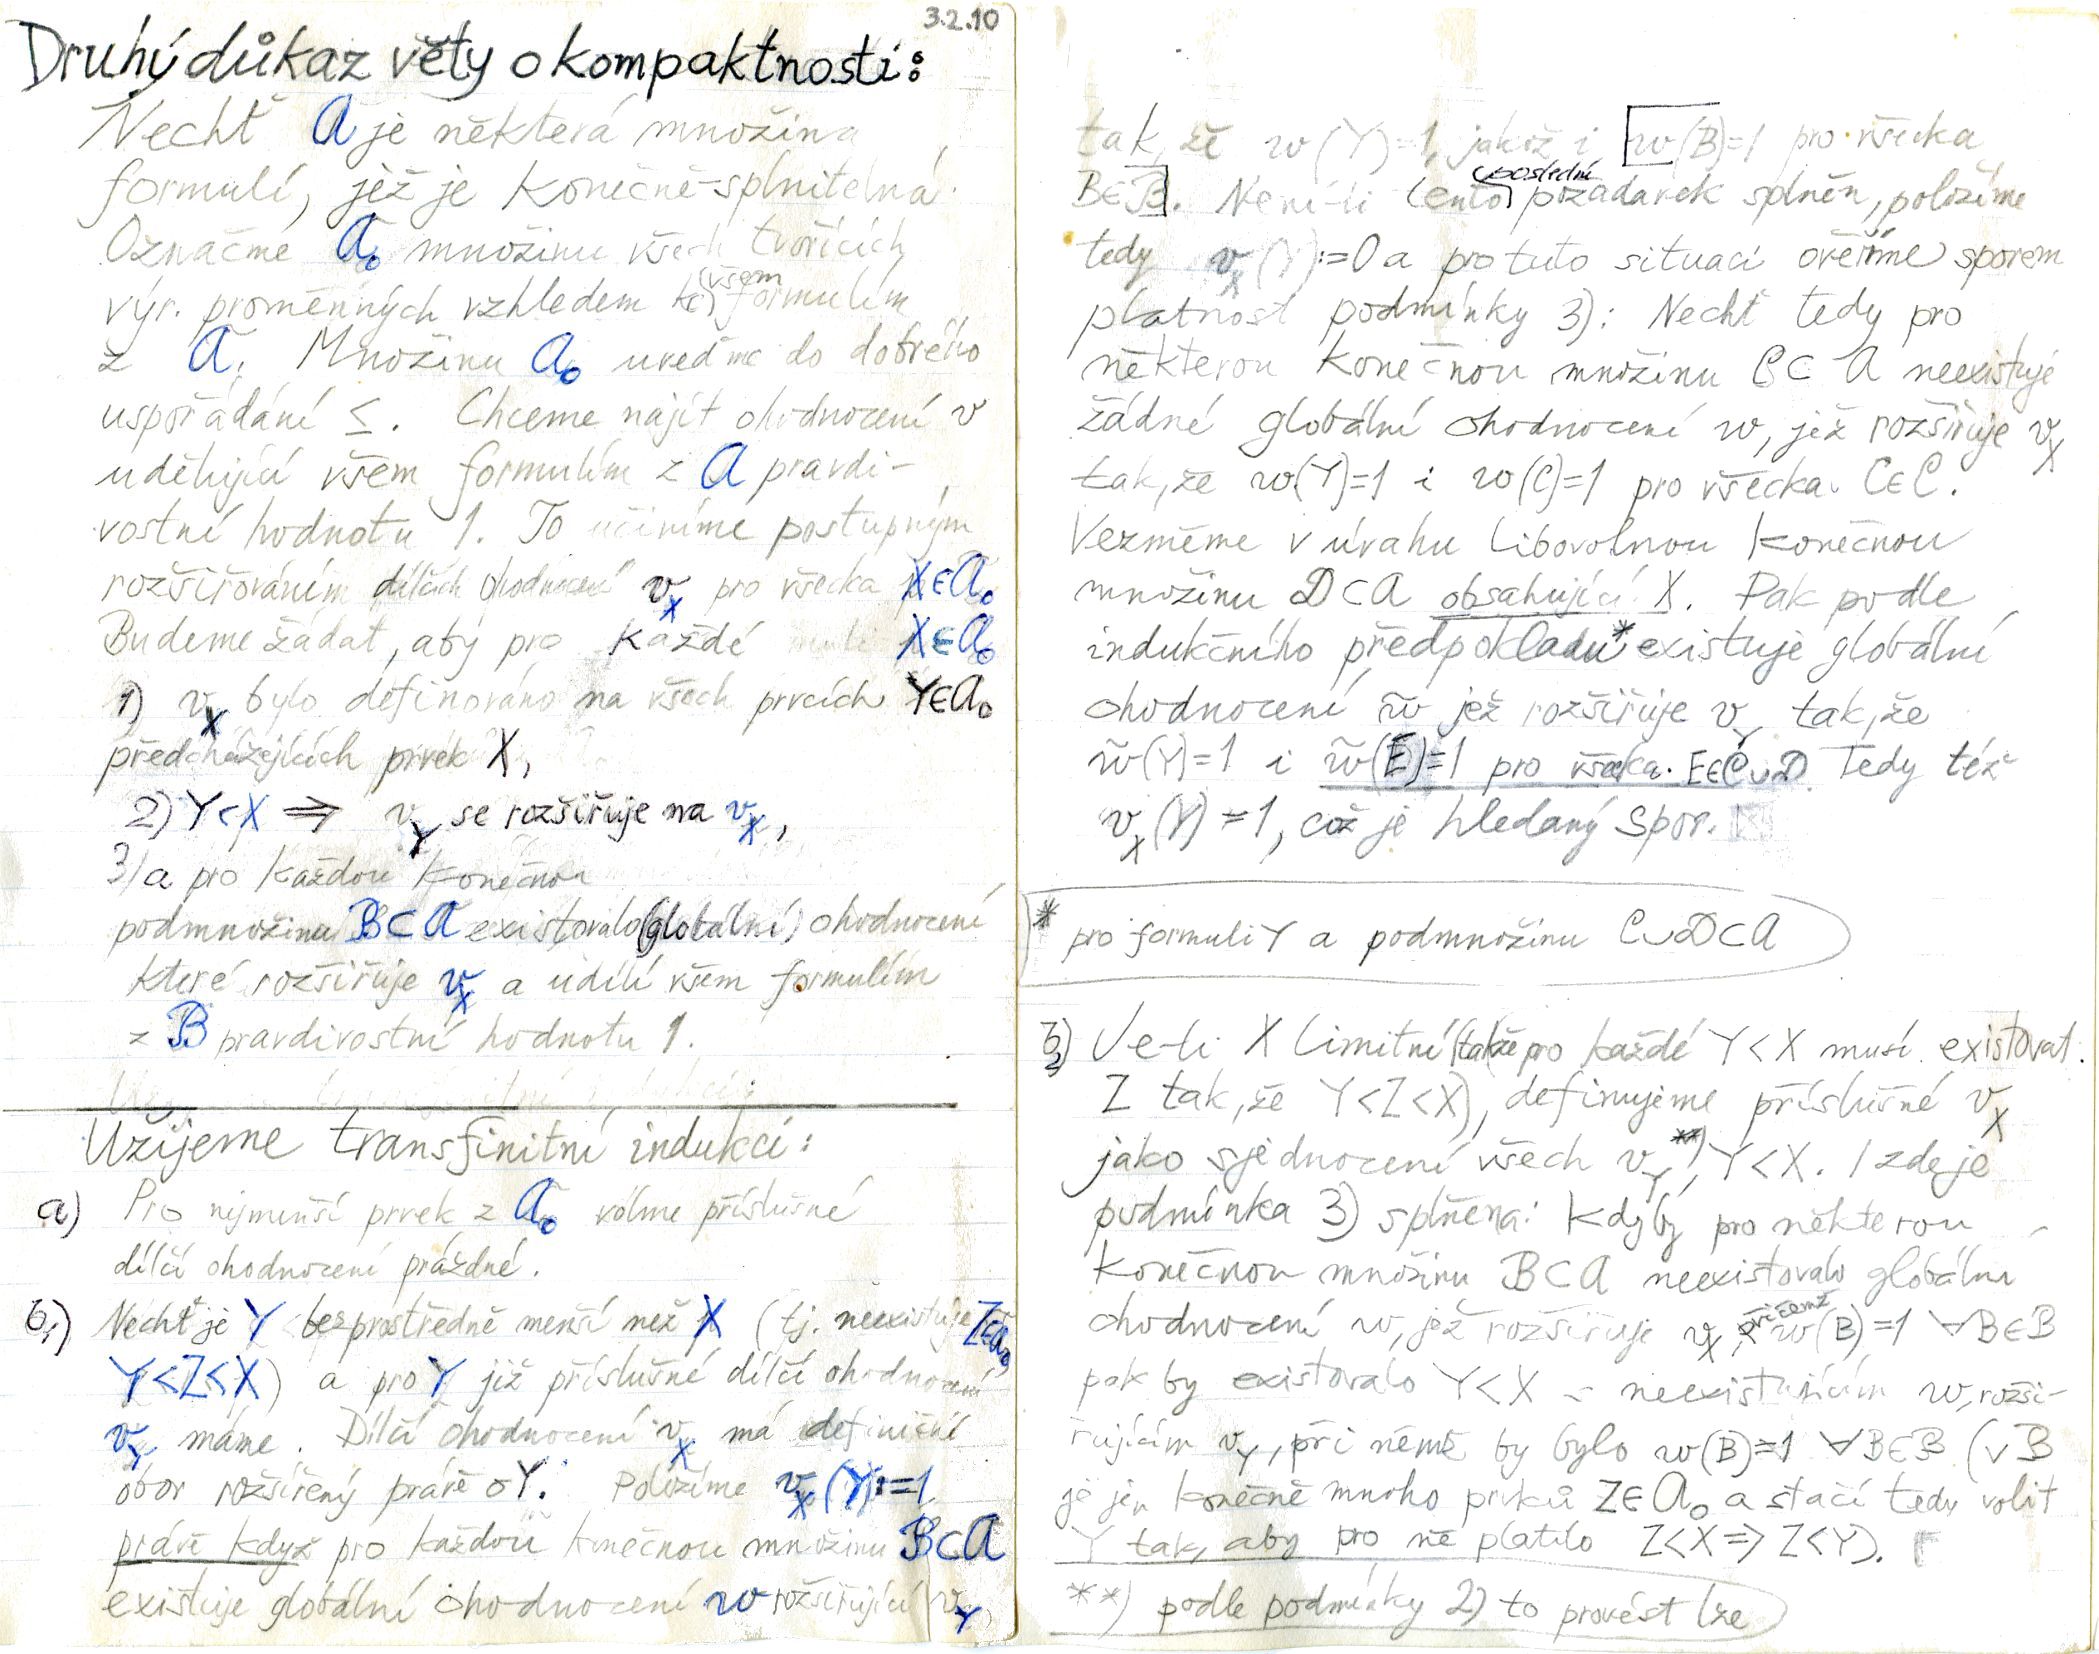 3.2.10
Druhý důkaz věty o kompaktnosti:
Nechť A je některá množina
formulí, jež je konečně-splnitelná.
Označme A₀ množinu všech tvořících
výr. proměnných vzhledem k (všem) formulím
z A. Množinu A₀ uveďme do dobrého
uspořádání ≤. Chceme najít ohodnocení v
udělující všem formulím z A pravdi-
vostní hodnotu 1. To učiníme postupným
rozšiřováním dílčích ohodnocení v_X pro všecka X∈A₀
Budeme žádat, aby pro každé X∈A₀
1) v_X bylo definováno na všech prvcích Y∈A₀
předcházejících prvek X,
2) Y<X ⇒ v_Y se rozšiřuje na v_X,
3) a pro každou konečnou
podmnožinu B⊂A existovalo (globální) ohodnocení
které rozšiřuje v_X a udílí všem formulím
z B pravdivostní hodnotu 1.
Užijeme transfinitní indukci:
a) Pro nejmenší prvek z A₀ volme příslušné
dílčí ohodnocení prázdné.
b₁) Nechť je Y bezprostředně menší než X (tj. neexistuje Z∈A₀
Y<Z<X) a pro Y již příslušné dílčí ohodnocení
v_Y máme. Dílčí ohodnocení v_X má definiční
obor rozšířený právě o Y. Položíme v_X(Y):=1
právě když pro každou konečnou množinu B⊂A
existuje globální ohodnocení w rozšiřující v_Y
tak, že w(Y)=1, jakož i w(B)=1 pro všecka
B∈B. Není-li tento poslední požadavek splněn, položíme
tedy v_X(Y):=0 a pro tuto situaci ověříme sporem
platnost podmínky 3): Nechť tedy pro
některou konečnou množinu C⊂A neexistuje
žádné globální ohodnocení w, jež rozšiřuje v_X
tak, že w(Y)=1 i w(C)=1 pro všecka C∈C.
Vezměme v úvahu libovolnou konečnou
množinu D⊂A obsahující X. Pak podle
indukčního předpokladu* existuje globální
ohodnocení w̃ jež rozšiřuje v_Y tak, že
w̃(Y)=1 i w̃(E)=1 pro všecka E∈C∪D Tedy též
v_X(Y)=1, což je hledaný spor.
* pro formuli Y a podmnožinu C∪D⊂A
b₂) Je-li X limitní (takže pro každé Y<X musí existovat
Z tak, že Y<Z<X), definujeme příslušné v_X
jako sjednocení všech v_Y**), Y<X. I zde je
podmínka 3) splněna: Kdyby pro některou
konečnou množinu B⊂A neexistovalo globální
ohodnocení w, jež rozšiřuje v_X, přičemž w(B)=1 ∀B∈B
pak by existovalo Y<X s neexistujícím w, rozši-
řujícím v_Y, při němž by bylo w(B)=1 ∀B∈B (v B
je jen konečně mnoho prvků Z∈A₀ a stačí tedy volit
Y tak, aby pro ně platilo Z<X ⇒ Z<Y).
**) podle podmínky 2) to provést lze